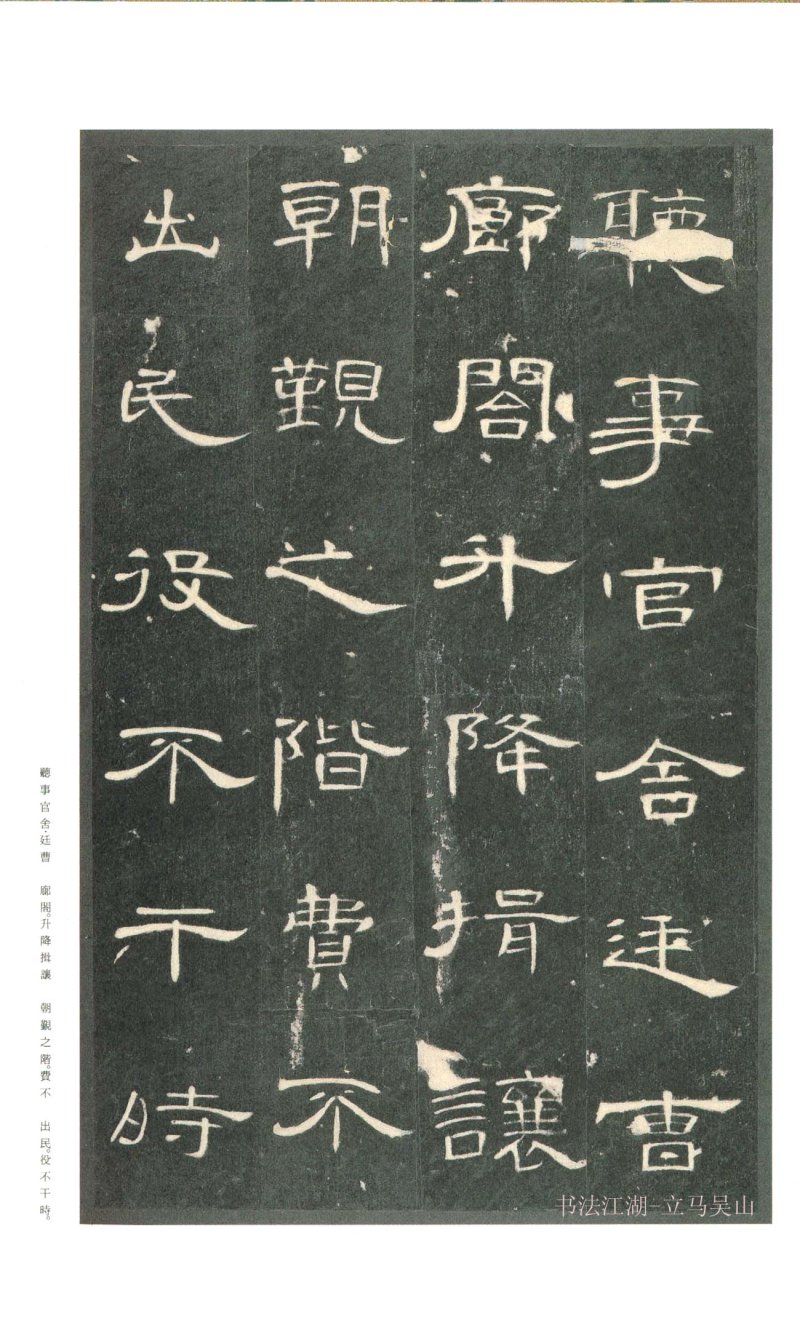 聽事官舍廷曹
廊閣升降揖讓
朝覲之階費不
出民役不干時
聽事官舍·廷曹　廊閣。升降揖讓　朝覲之階。費不　出民。役不干時。
书法江湖-立马吴山